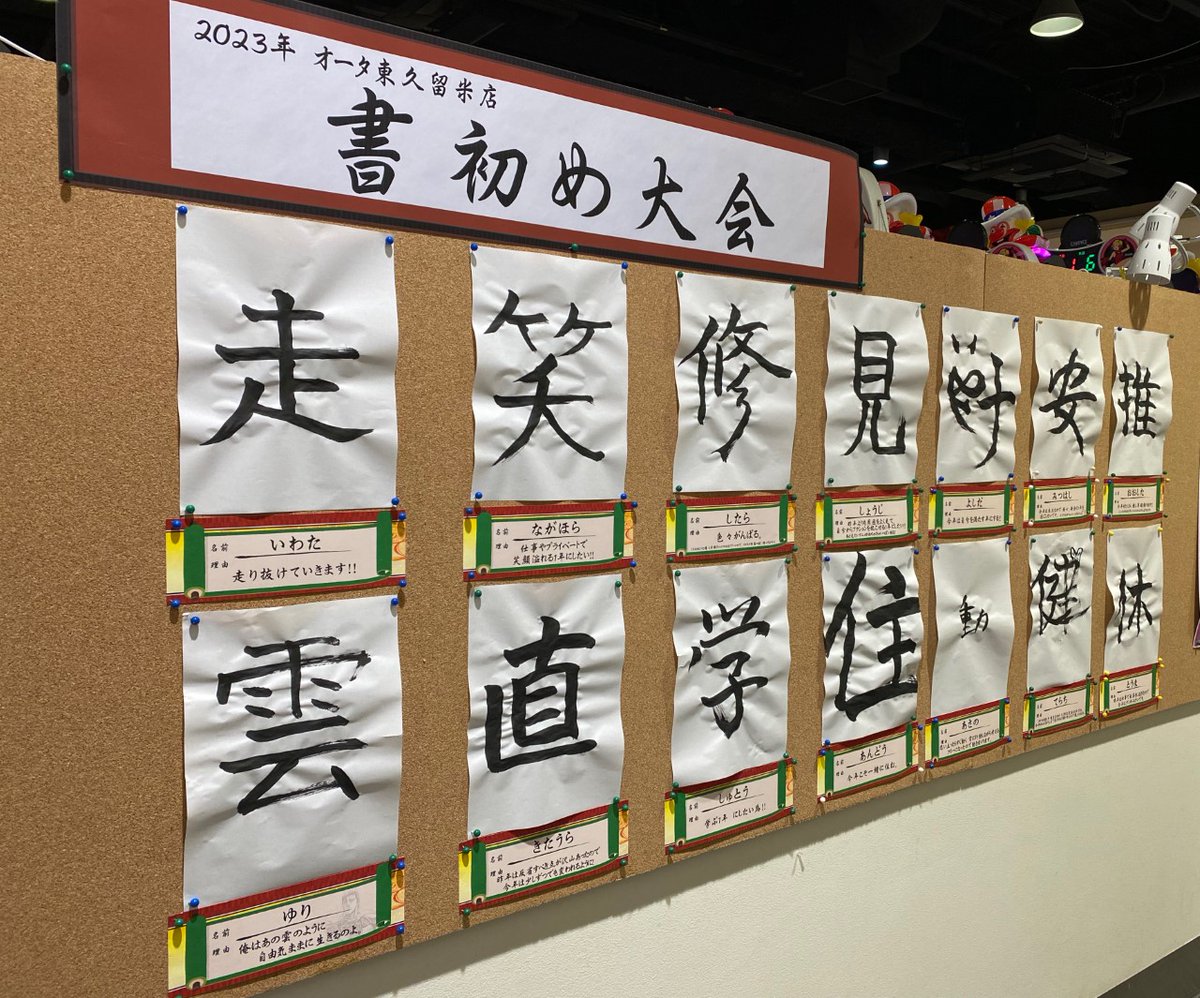 2023年 オータ東久留米店
書初め大会
走
笑
修
見
安
推
名前 いわた
理由 走り抜けていきます!!
名前 ながほら
理由 仕事やプライベートで
笑顔溢れる1年にしたい!!
名前 したら
理由 色々がんばる。
名前 しょうじ
名前 よしだ
名前 みつはし
名前 おおした
雲
直
学
住
動
健
体
名前 ゆり
理由 俺はあの雲のように
自由気ままに生きるのよ。
名前 きたうら
理由 昨年は反省すべき点が沢山あったので
今年は少しずつでも変われるように
名前 しゅとう
理由 学ぶ1年にしたい為!!
名前 あんどう
理由 今年こそ一緒に住む。
名前 あきの
名前 てらち
名前 とうま